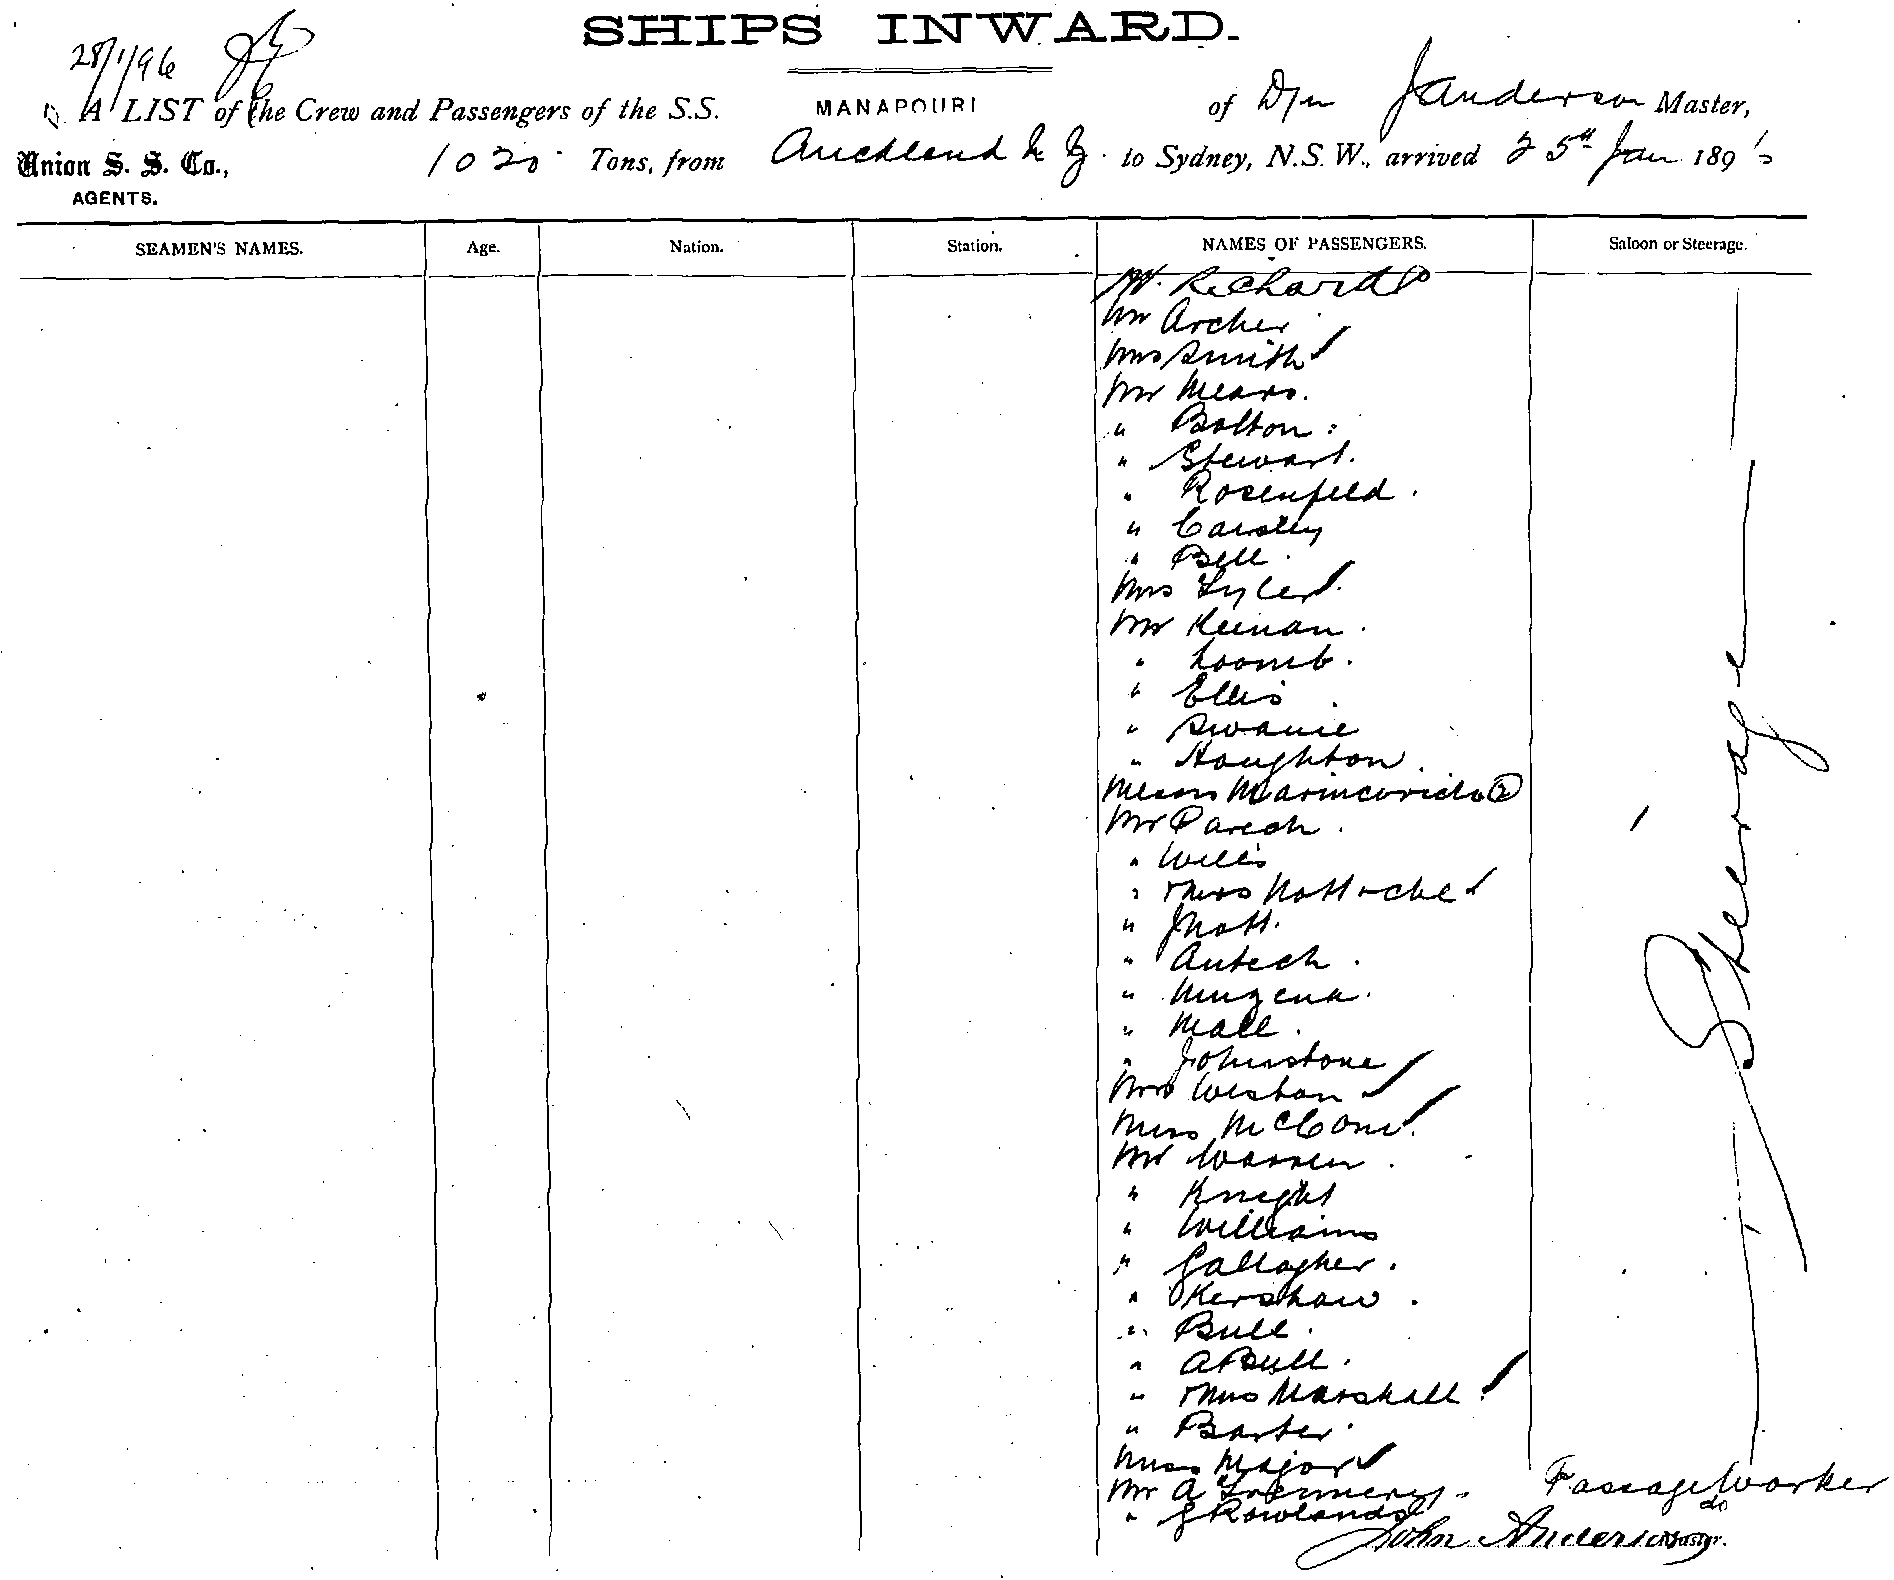 SHIPS INWARD.
28/1/96
A LIST of the Crew and Passengers of the S.S. MANAPOURI of Dn J Anderson Master,
Union S. S. Co., 1020 Tons, from Auckland N Z. to Sydney, N.S.W., arrived 25th Jan 189
AGENTS.
SEAMEN'S NAMES. Age. Nation. Station. NAMES OF PASSENGERS. Saloon or Steerage.
W. Richards
Mr Archer
Mrs Smith
Mr Mears.
" Bolton
" Stewart.
" Rosenfeld.
" Carsley
" Bell.
Mrs Tyler
Mr Keenan.
" Loomb.
" Ellis
" Swanie
" Houghton.
Messrs Marincovich 2
Mr Parech.
" Wills
" & Mrs
" J Nott.
" Autech.
" Muzena.
" Mall.
" Johnstone
Mrs Weston
Miss
Mr Warren.
" Knight
" Williams
" Gallagher.
" Kershaw.
" Bull.
" A Bull.
" & Mrs Marshall
" Barber
Miss Major
Steerage
Mr A Passage Worker
" G Rowlands do
John Anderson Master.